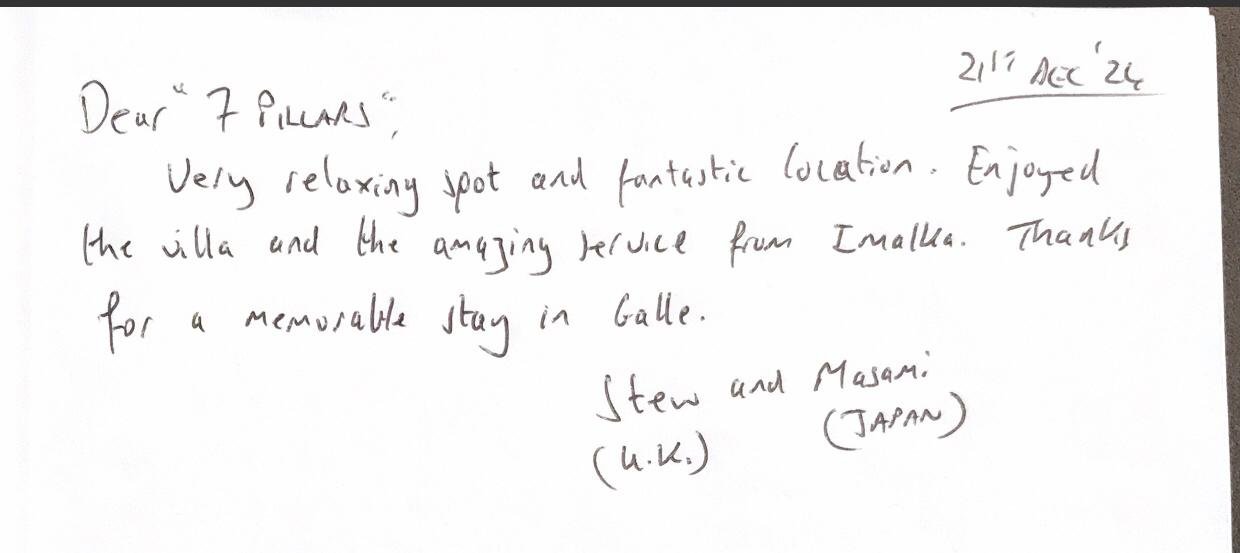 21st DEC '24
Dear "7 PILLARS",
Very relaxing spot and fantastic location. Enjoyed
the villa and the amazing service from Imalka. Thanks
for a memorable stay in Galle.
Stew and Masami
(U.K.) (JAPAN)